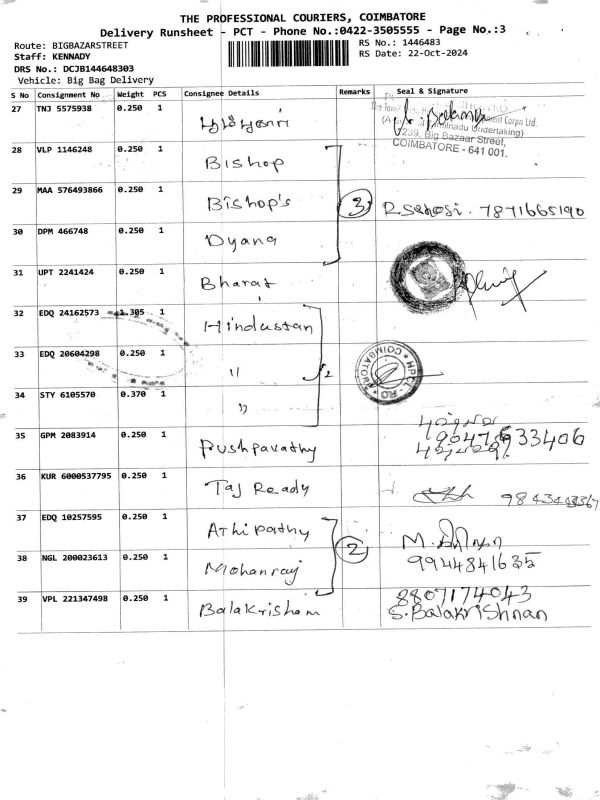 THE PROFESSIONAL COURIERS, COIMBATORE
Delivery Runsheet - PCT - Phone No.:0422-3505555 - Page No.:3
Route: BIGBAZARSTREET
RS No.: 1446483
Staff: KENNADY
RS Date: 22-Oct-2024
DRS No.: DCJB144648303
Vehicle: Big Bag Delivery
S No Consignment No Weight PCS Consignee Details Remarks Seal & Signature
27 TNJ 5575938 0.250 1
Undertaking)
239, Big Bazaar Street,
COIMBATORE - 641 001.
28 VLP 1146248 0.250 1 Bishop
29 MAA 576493866 0.250 1 Bishop's 3 7871665190
30 DPM 466748 0.250 1 Dyana
31 UPT 2241424 0.250 1 Bharat
32 EDQ 24162573 1.305 1 Hindustan
33 EDQ 20604298 0.250 1 " 2
34 STY 6105570 0.370 1 "
35 GPM 2083914 0.250 1 Pushpavathy
36 KUR 6000537795 0.250 1 Taj Ready
37 EDQ 10257595 0.250 1 Athipathy 2
38 NGL 200023613 0.250 1 Mohanraj 9944841635
39 VPL 221347498 0.250 1 Balakrisham 8807174043
S.Balakrishnan